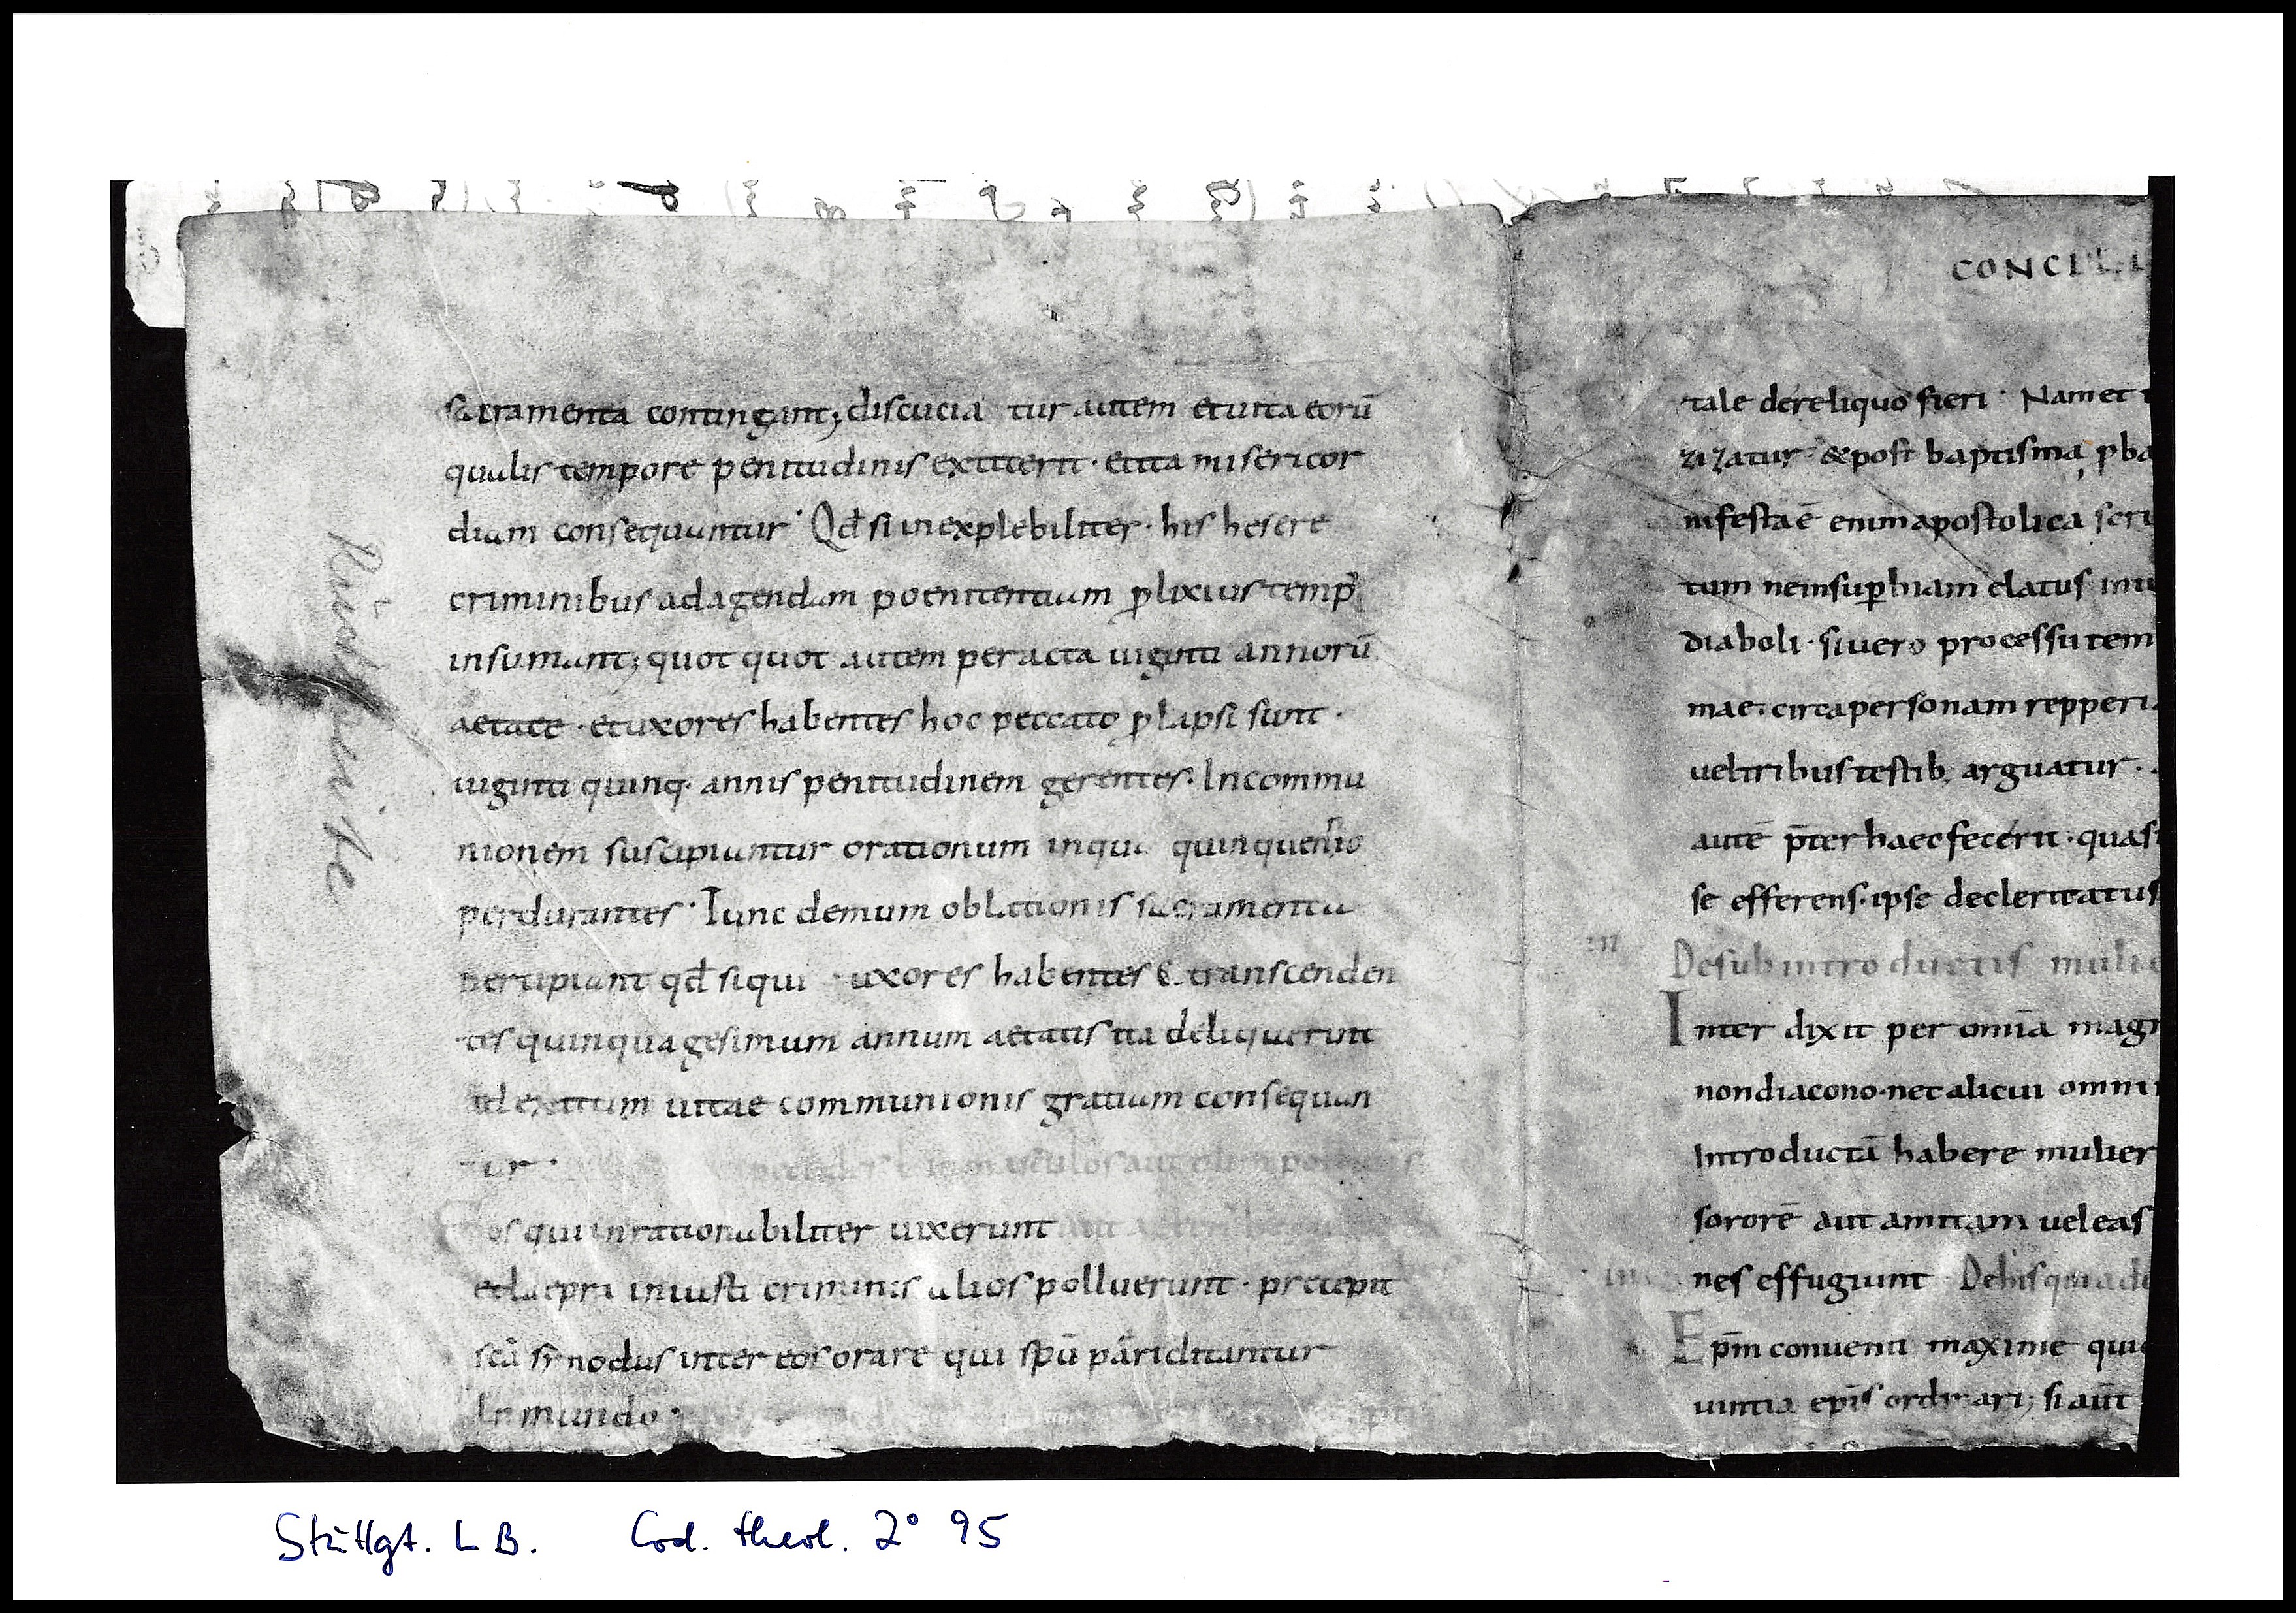 sacramenta contingant; discucia tur autem et uita eorū
qualis tempore penitudinis extiterit · et ita misericor
diam consequantur · Qđ si inexplebiliter · his hesere
criminibus ad agendam poenitentiam ꝓlixius temp̄
insumant; quot quot autem peracta uiginti annorū
aetate · et uxores habentes hoc peccato ꝓlapsi sunt ·
uiginti quinq· annis penitudinem gerentes · In commu
nionem suscipiantur orationum in qua quinquennio
perdurantes · Tunc demum oblationis sacramenta
percipiant qđ siqui uxores habentes & transcenden
tes quinquagesimum annum aetatis ita deliquerint
ad exitum uitae communionis gratiam consequan
tur · masculos aut olim
Eos qui inrationabiliter uixerunt
et lepra iniusti criminis alios polluerunt · precepit
scā sinodus inter eos orare qui spū periclitantur
Inmundo ·
CONCILI
tale dereliquo fieri · Nam et
zizatur · & post baptisma, ꝓba
nifesta ē enim apostolica scri
tum ne insuꝑbiam elatus
diaboli · si uero processu tem
mae · circa personam repperi
uel tribus testib; arguatur ·
autē p̄ter haec fecerit · quasi
se efferens · ipse de cleri statu s
De subintroductis mulie
Inter dixit per omīa magn
non diacono · nec alicui omni
Introductā habere mulier
sororē aut amitam uel eas
nes effugiunt De his qui ad
Ep̄m conuenit maxime qui
uintia ep̄is ordinari; si aūt
Stuttgt. L B. Cod. theol. 2° 95